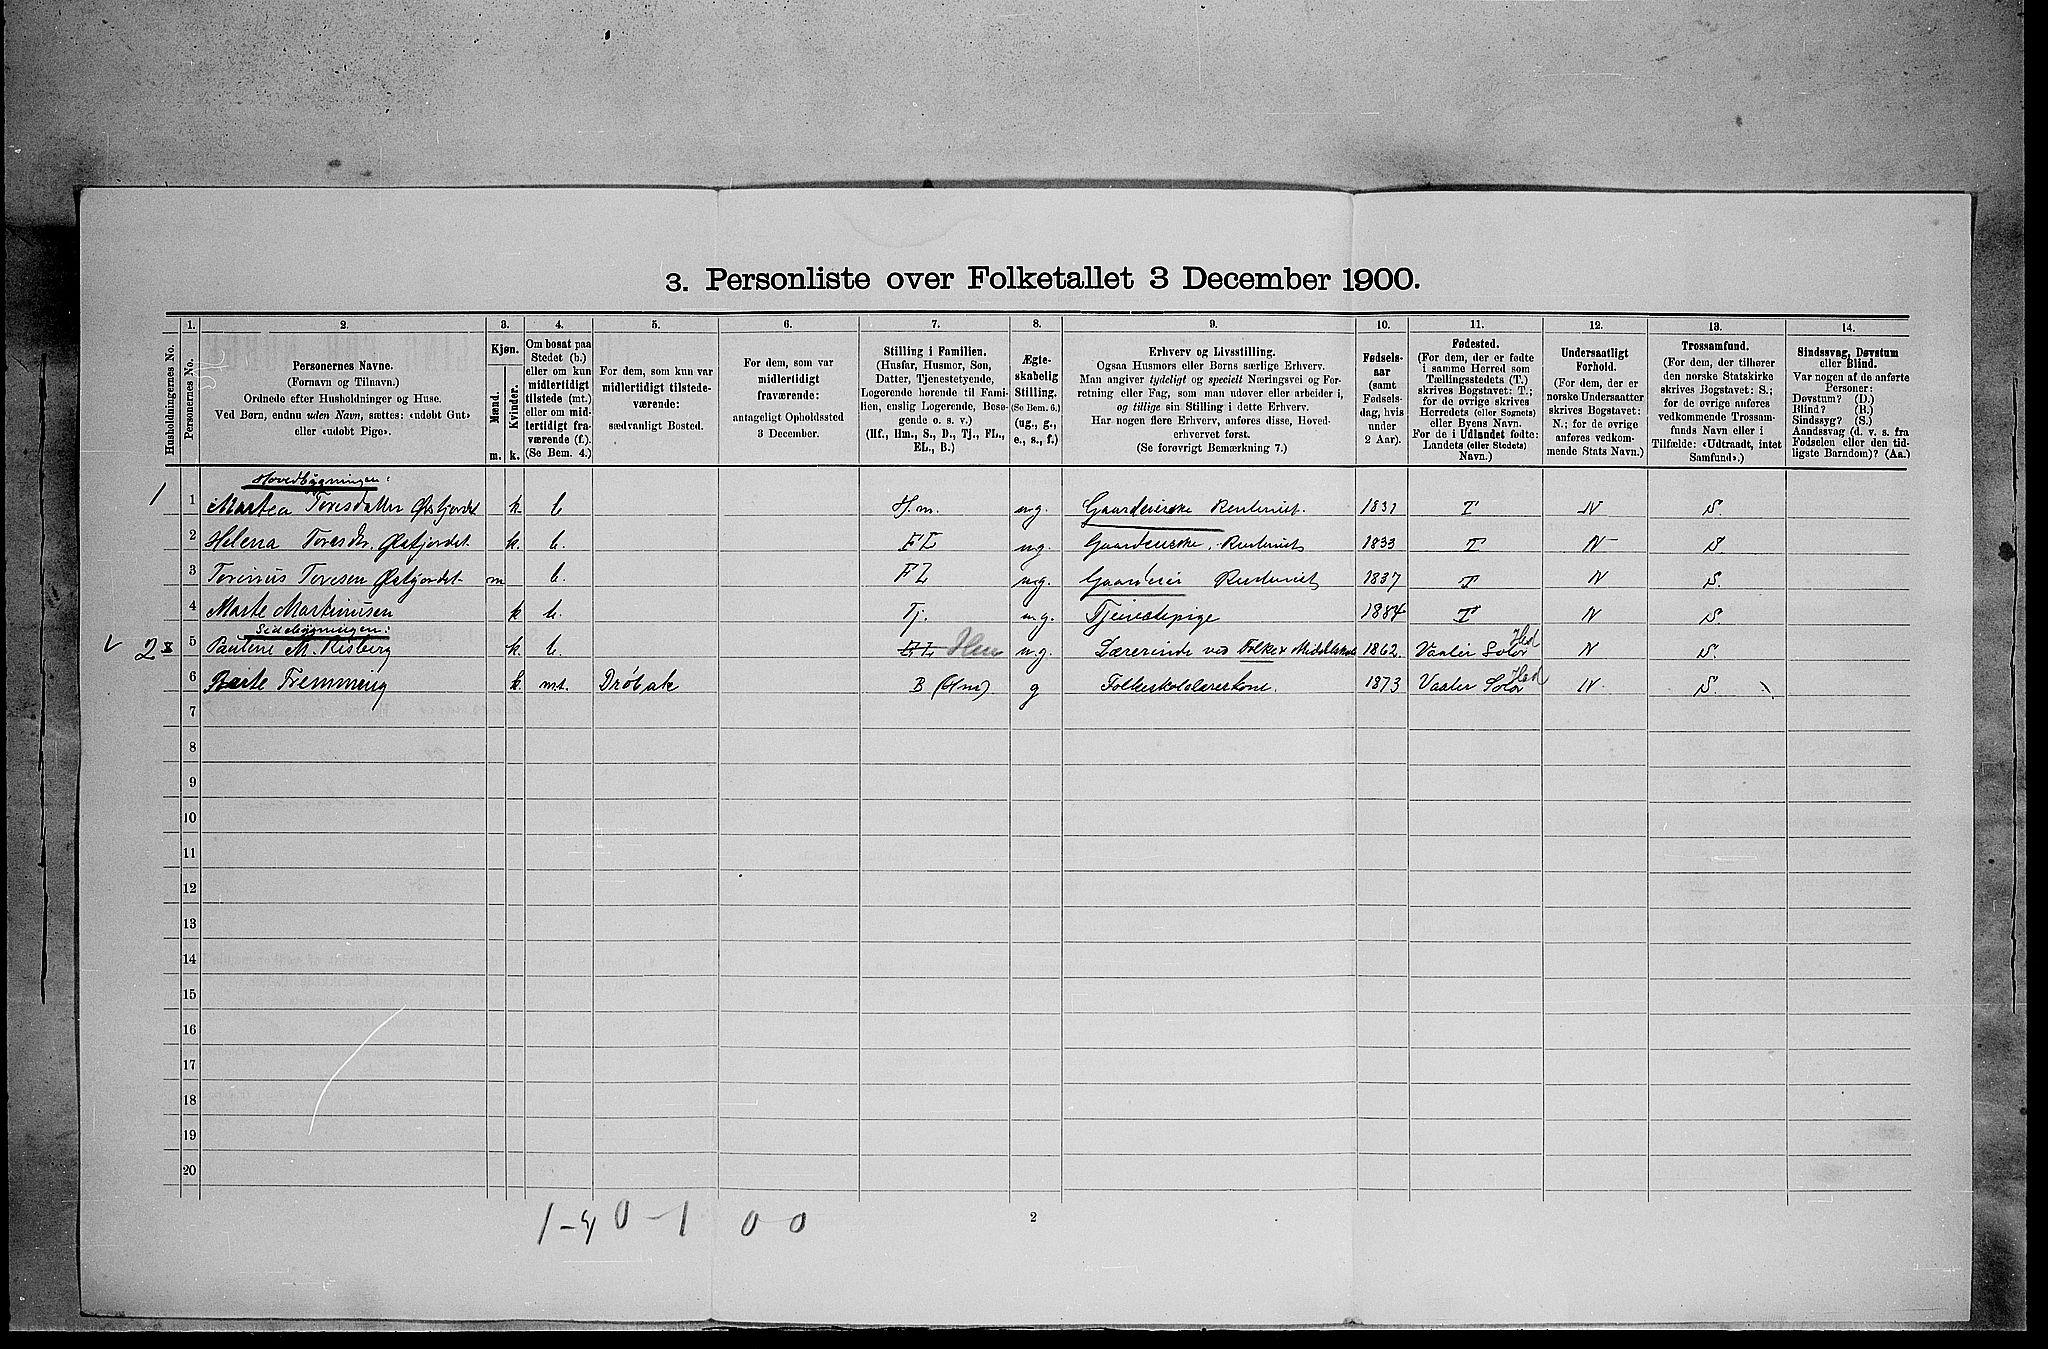 3. Personliste over Folketallet 3 December 1900.
Husholdningernes No.
1.
Personernes No.
2.
Personernes Navne.
(Fornavn og Tilnavn.)
Ordnede efter Husholdninger og Huse.
Ved Børn, endnu uden Navn, sættes: «udøbt Gut»
eller «udøbt Pige».
3.
Kjøn.
Mænd.
m.
Kvinder.
k.
4.
Om bosat paa
Stedet (b.)
eller om kun
midlertidigt
tilstede (mt.)
eller om mid-
lertidigt fra-
værende (f.).
(Se Bem. 4.)
5.
For dem, som kun var
midlertidigt tilstede-
værende:
sædvanligt Bosted.
6.
For dem, som var
midlertidigt
fraværende:
antageligt Opholdssted
3 December.
7.
Stilling i Familien.
(Husfar, Husmor, Søn,
Datter, Tjenestetyende,
Logerende hørende til Fami-
lien, enslig Logerende, Besø-
gende o. s. v.)
(Hf., Hm., S., D., Tj., FL.,
EL., B.)
8.
Ægte-
skabelig
Stilling.
(Se Bem. 6.)
(ug., g.,
e., s., f.)
9.
Erhverv og Livsstilling.
Ogsaa Husmors eller Børns særlige Erhverv.
Man angiver tydeligt og specielt Næringsvei og For-
retning eller Fag, som man udøver eller arbeider i,
og tillige sin Stilling i dette Erhverv.
Har nogen flere Erhverv, anføres disse, Hoved-
erhvervet først.
(Se forøvrigt Bemærkning 7.)
10.
Fødsels-
aar
(samt
Fødsels-
dag, hvis
under
2 Aar).
11.
Fødested.
(For dem, der er fødte
i samme Herred som
Tællingsstedets (T.)
skrives Bogstavet: T.;
for de øvrige skrives
Herredets (eller Sognets)
eller Byens Navn.
For de i Udlandet fødte:
Landets (eller Stedets)
Navn.)
12.
Undersaatligt
Forhold.
(For dem, der er
norske Undersaatter
skrives Bogstavet:
N.; for de øvrige
anføres vedkom-
mende Stats Navn.)
13.
Trossamfund.
(For dem, der tilhører
den norske Statskirke
skrives Bogstavet: S.;
for de øvrige anføres
vedkommende Trossam-
funds Navn eller i
Tilfælde: «Udtraadt, intet
Samfund».)
14.
Sindssvag, Døvstum
eller Blind.
Var nogen af de anførte
Personer:
Døvstum? (D.)
Blind? (B.)
Sindssyg? (S.)
Aandssvag (d. v. s. fra
Fødselen eller den tid-
ligste Barndom)? (Aa.)
Hovedbygningen:
1 1 Martea Toresdatter Østfjordet k. b. H.m. ug. Gaardeierske Rentenist. 1831 T N S.
2 Helena Toresdr. Østfjordet. k. b. FL ug. Gaardeierske, Rentenist 1833 T N S
3 Torinus Toresen Østfjordet m b. FL ug. Gaardeier Rentenist 1837 T N S.
4 Marte Martinusen k b. Tj. ug. Tjenestepige 1884 T N S
Sidebygningen:
2 5 Pauline M. Risberg k. b. EL Hm ug. Lærerinde ved Folke & Middelskole 1862. Vaaler Solør Hed N S.
6 Berte Fremming k. m.t. Drøbak B (Hm) g Folkeskolelærerkone. 1873 Vaaler Solør Hed N. S.
7
8
9
10
11
12
13
14
15
16
17
18
19
20
1-4 0-1 0 0
2